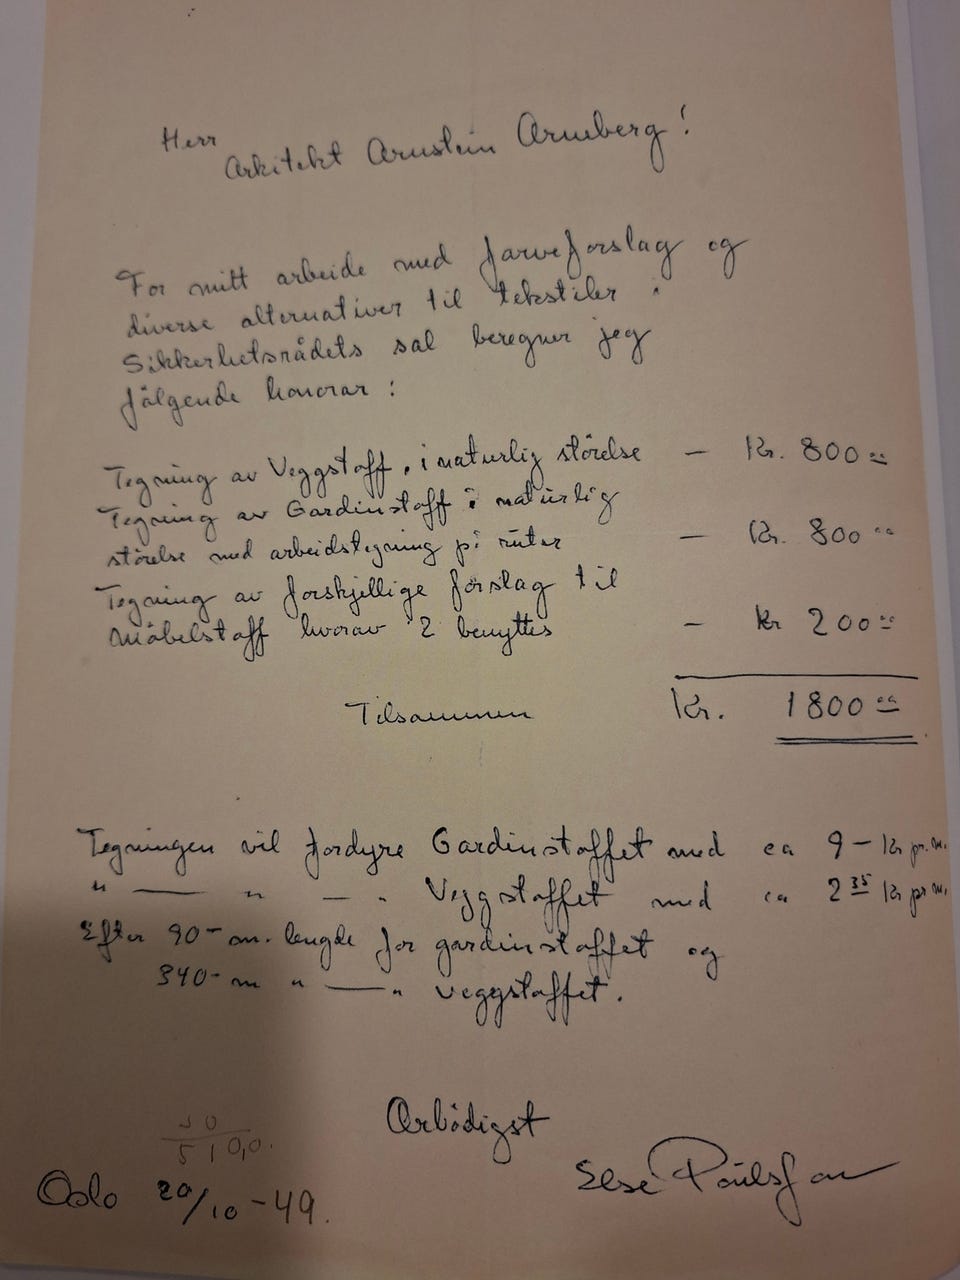 Herr
Arkitekt Arnstein Arneberg!
For mitt arbeide med farveforslag og
diverse alternativer til tekstiler i
Sikkerhetsrådets sal beregner jeg
følgende honorar:
Tegning av Veggstoff, i naturlig störelse — Kr. 800 00
Tegning av Gardinstoff i naturlig
störelse med arbeidstegning på ruter — Kr. 800 00
Tegning av forskjellige forslag til
Möbelstoff hvorav 2 benyttes — Kr 200 00
Tilsammen Kr. 1800 00
Tegningen vil fordyre Gardinstoffet med ca 9 — Kr pr. m.
" — " — " Veggstoffet med ca 2 35 Kr pr m.
Efter 90 - m. lengde for gardinstoffet og
340 - m " — " veggstoffet.
Ærbödigst
50
510,0.
Oslo 20/10 - 49.
Else Poulsson